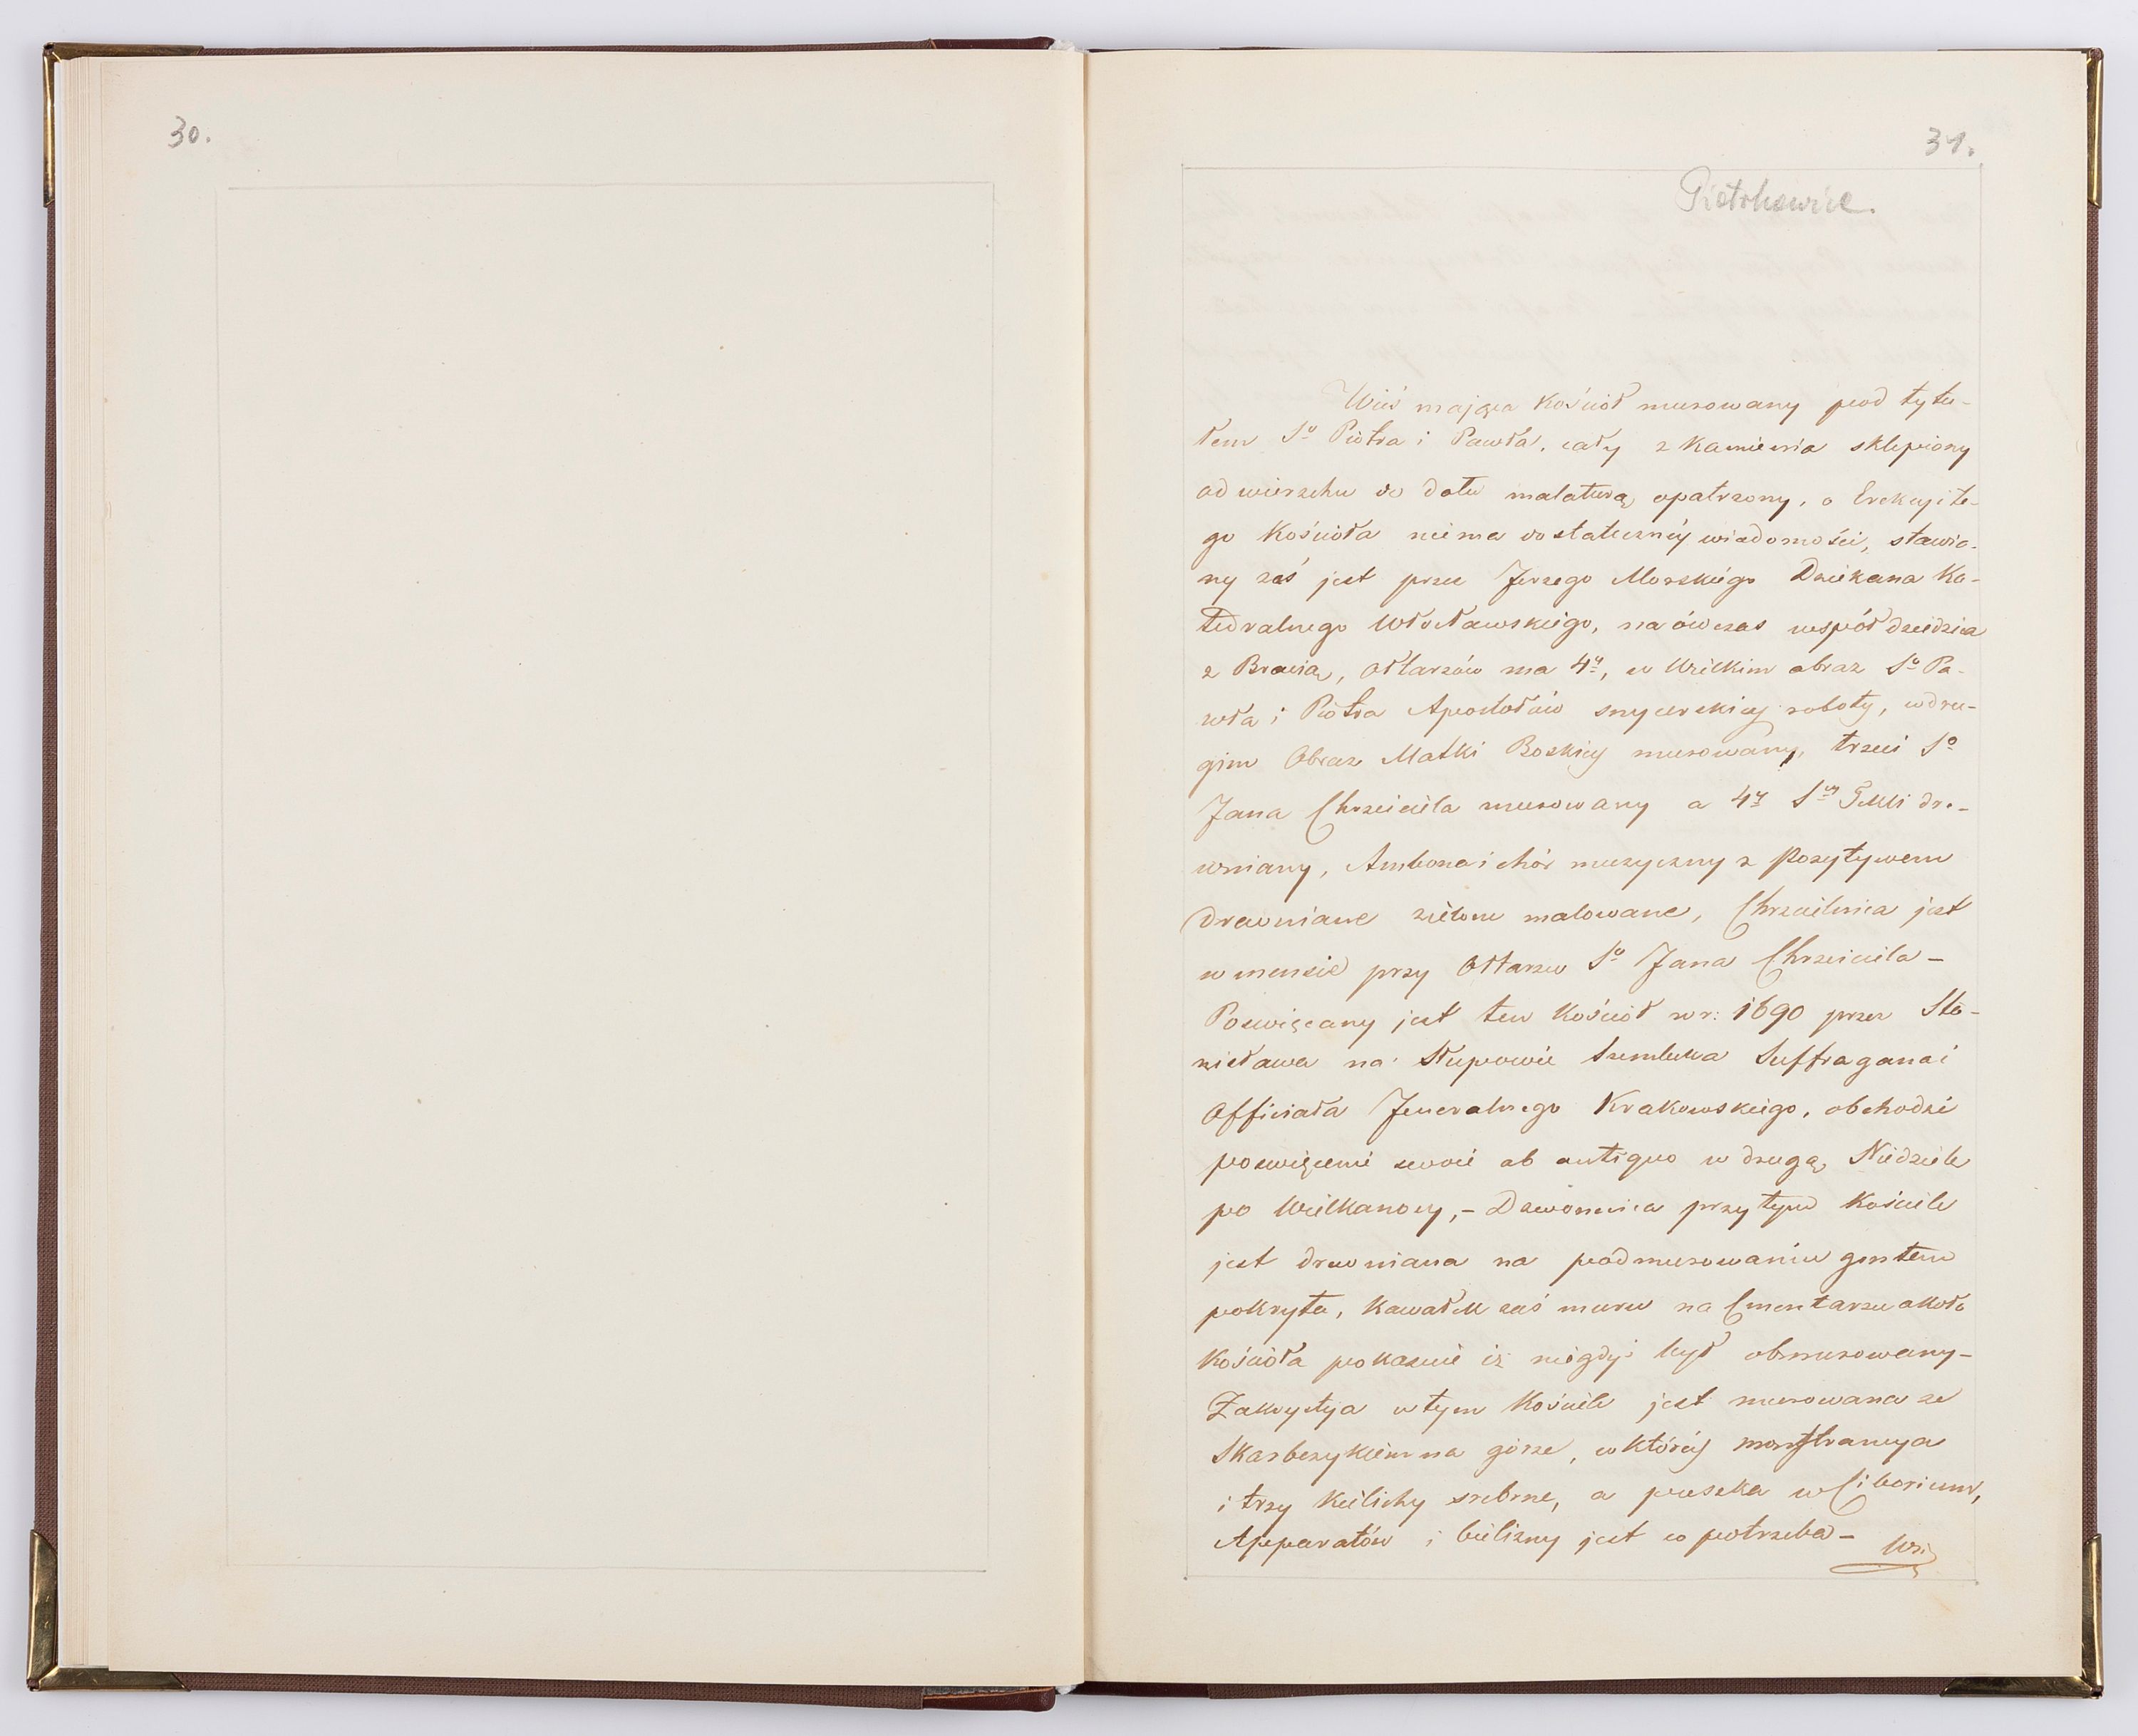 30.
31.
Piotrkowice.
Wieś mająca Kościoł murowany pod tytu-
łem Sº Piotra i Pawła, cały z Kamienia sklepiony
od wierzchu do dołu malaturą opatrzony, o Erekcyi te-
go Kościoła niema dostatecznéy wiadomości, stawia-
ny zaś jest przez Jerzego Morskiégo Dziekana Ka-
tedralnego Włocławskiego, na ówczas wspołdziedzica
z Bracią, Ołtarzów ma 4y, w Wielkim obraz Sº Pa-
wła i Piotra Apostołów snycerskiey roboty, w dru-
gim Obraz Matki Boskiey murowany, trzeci Sº
Jana Chrzciciela murowany a 4y Sey Tekli dre-
wniany, Ambona i chór muzyczny z Pozytywem
drewniane zielono malowane, Chrzcielnica jest
w mensie przy Ołtarzu Sº Jana Chrzciciela –
Poswięcany jest ten Kościoł w r: 1690 przez Sta-
nisława na Słupowie Szembeka Suffragana i
Officiała Jeneralnego Krakowskiego, obchodzi
poswięcenie swoie ab antiquo w drugą Niedziele
po Wielkanocy, – Dzwonnica przy tym Kościele
jest drewniana na podmurowaniu gontem
pokryta, Kawałek zaś muru na Cmentarzu około
Kościoła pokazuie iż niegdyś był obmurowany –
Zakrystya w tym Kościele jest murowana ze
Skarbczykiem na górze, w któréy monstrancya
i trzy Kielichy srebrne, a puszka w Ciborium,
Apparatów i bielizny jest co potrzeba –